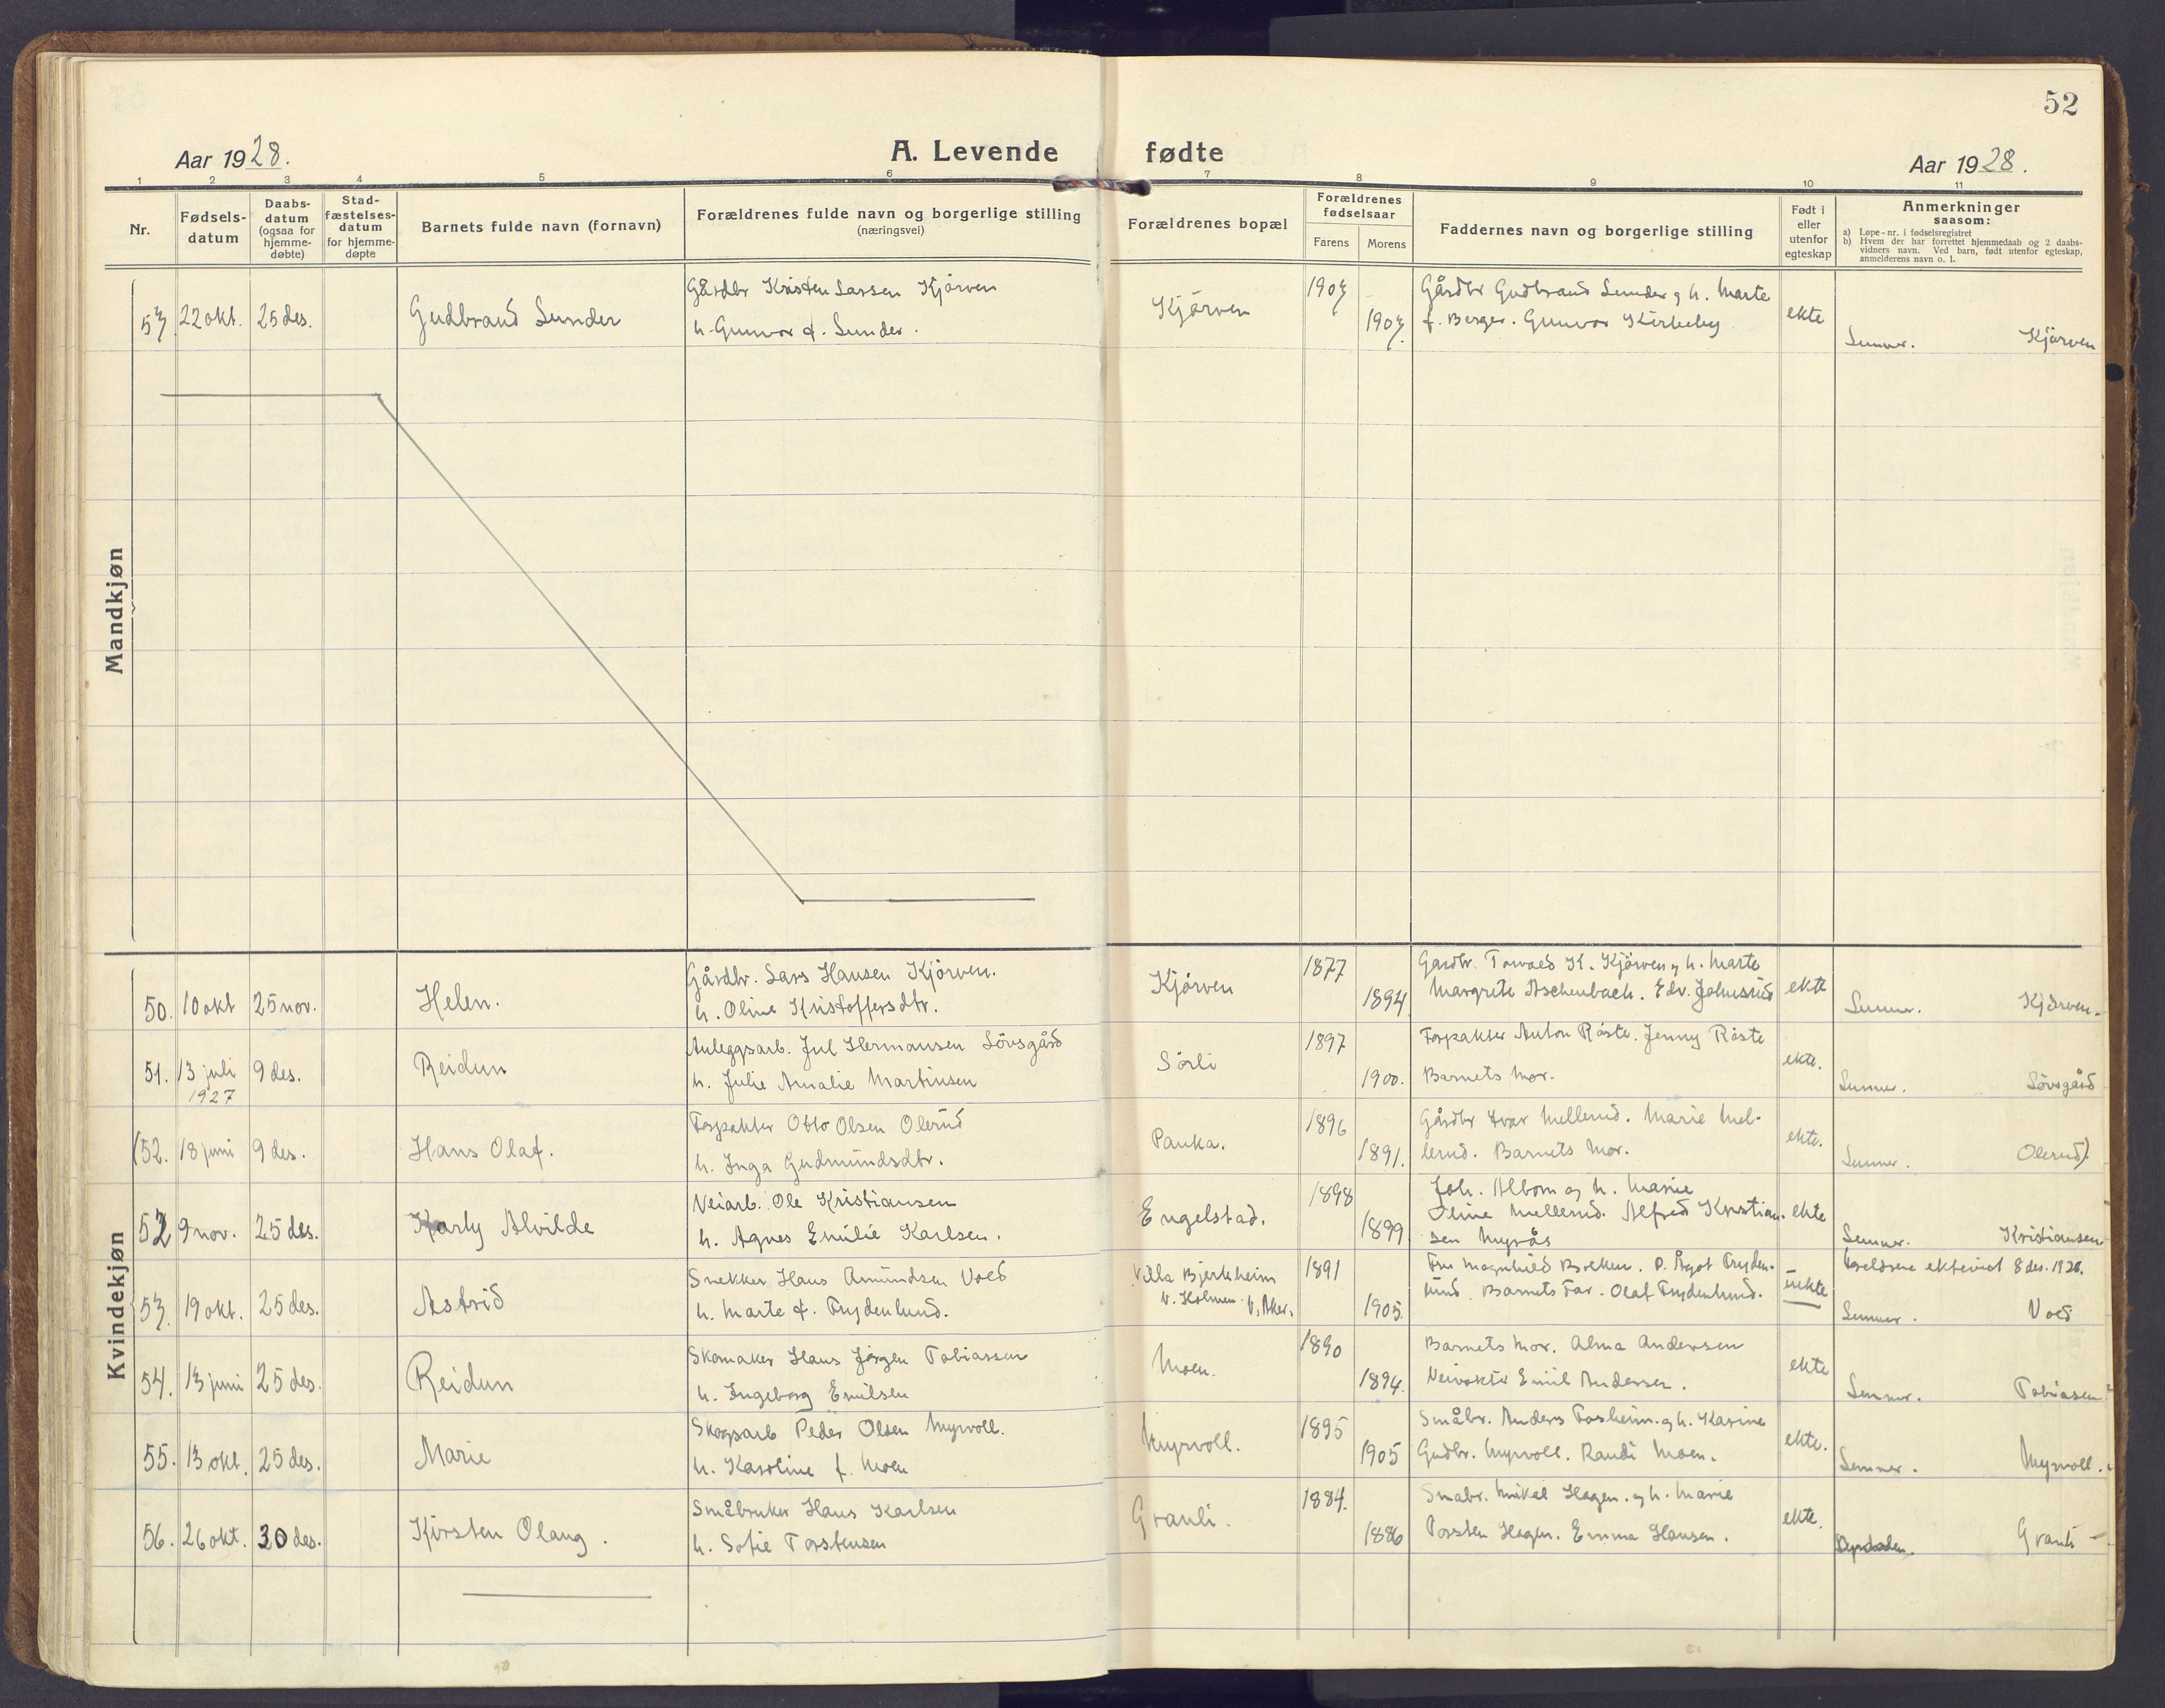 52
Aar 1928.
A. Levende fødte
Aar 1928.
1 2 3 4 5 6 7 8 9 10 11
Nr.
Fødsels-
datum
Daabs-
datum
(ogsaa for
hjemme-
døbte)
Stad-
fæstelses-
datum
for hjemme-
døpte
Barnets fulde navn (fornavn)
Forældrenes fulde navn og borgerlige stilling
(næringsvei)
Forældrenes bopæl
Forældrenes
fødselsaar
Farens Morens
Faddernes navn og borgerlige stilling
Født i
eller
utenfor
egteskap
Anmerkninger
saasom:
a) Løpe-nr. i fødselsregistret
b) Hvem der har forrettet hjemmedaab og 2 daabs-
vidners navn. Ved barn, født utenfor egteskap,
anmelderens navn o. l.
Mandkjøn
57. 22 okt. 25 des. Gudbrand Lunder
Gårdbr Kristen Larsen Kjörven
h. Gunvor f. Lunder.
Kjörven
1907
1907.
Gårdbr Gudbrand Lunder og h. Marte
f. Berger. Gunvor Kirkeby
ekte
Lunner. Kjörven
Kvindekjøn
50. 10 okt 25 nov. Helen.
Gårdbr. Lars Hansen Kjörven.
h. Oline Kristoffersdtr.
Kjörven
1877
1894
Gardbr. Torvald K. Kjörven og h. Marte
Margrete Aschenbach. Edv. Johnsrud
ekte
Lunner. Kjörven.
51. 13 juli
1927
9 des. Reidun
Anleggsarb. Jul Hermansen Lövsgård
h. Julie Amalie Martinsen
Sörli
1897
1900.
Forpakter Anton Råste. Jenny Råste
Barnets Mor.
ekte.
Lunner. Lövsgård
(52. 18 juni 9 des. Hans Olaf.
Forpakter Otto Olsen Olerud
h. Inga Gudmundsdtr.
Pauka.
1896
1891.
Gårdbr Ivar Mellerud. Marie Mel-
lerud. Barnets Mor.
ekte.
Lunner. Olerud).
52 9 nov. 25 des. Karly Alvilde
Veiarb. Ole Kristiansen
h. Agnes Emilie Karlsen.
Engelstad.
1898
1899
Joh. Albom og h. Marie
Oline Mellerud. Alfred Kristian-
sen Myrås
ekte
Lunner. Kristiansen.
53. 19 okt. 25 des. Astrid
Snekker Hans Amundsen Vold
h. Marte f. Frydenlund.
Villa Bjerkheim
v. Holmen V. Aker.
1891
1905.
Fru Magnhild Brekken. P. Ågot Fryden-
lund. Barnets Far. Olaf Frydenlund.
uekte
Foreldrene ekteviet 8 des. 1928.
Lunner. Vold
54. 13 juni 25 des. Reidun
Skomaker Hans Jörgen Tobiassen
h. Ingeborg Emilsen
Moen.
1890
1894.
Barnets Mor. Alma Andersen
Veivokter Emil Andersen.
ekte
Lunner. Tobiasen
55. 13 okt. 25 des. Marie
Skogsarb Peder Olsen Myrvoll.
h. Karoline f. Moen
Myrvoll.
1895
1905
Småbr. Anders Fosheim og h. Karine
Gudbr. Myrvoll. Randi Moen.
ekte.
Lunner. Myrvoll.
56. 26 okt. 30 des. Kirsten Olaug.
Småbruker Hans Karlsen
h. Sofie Torstensen
Granli.
1884.
1886
Småbr. Mikal Hagen. og h. Marie
Torsten Hagen. Emma Hansen.
ekte.
Granli